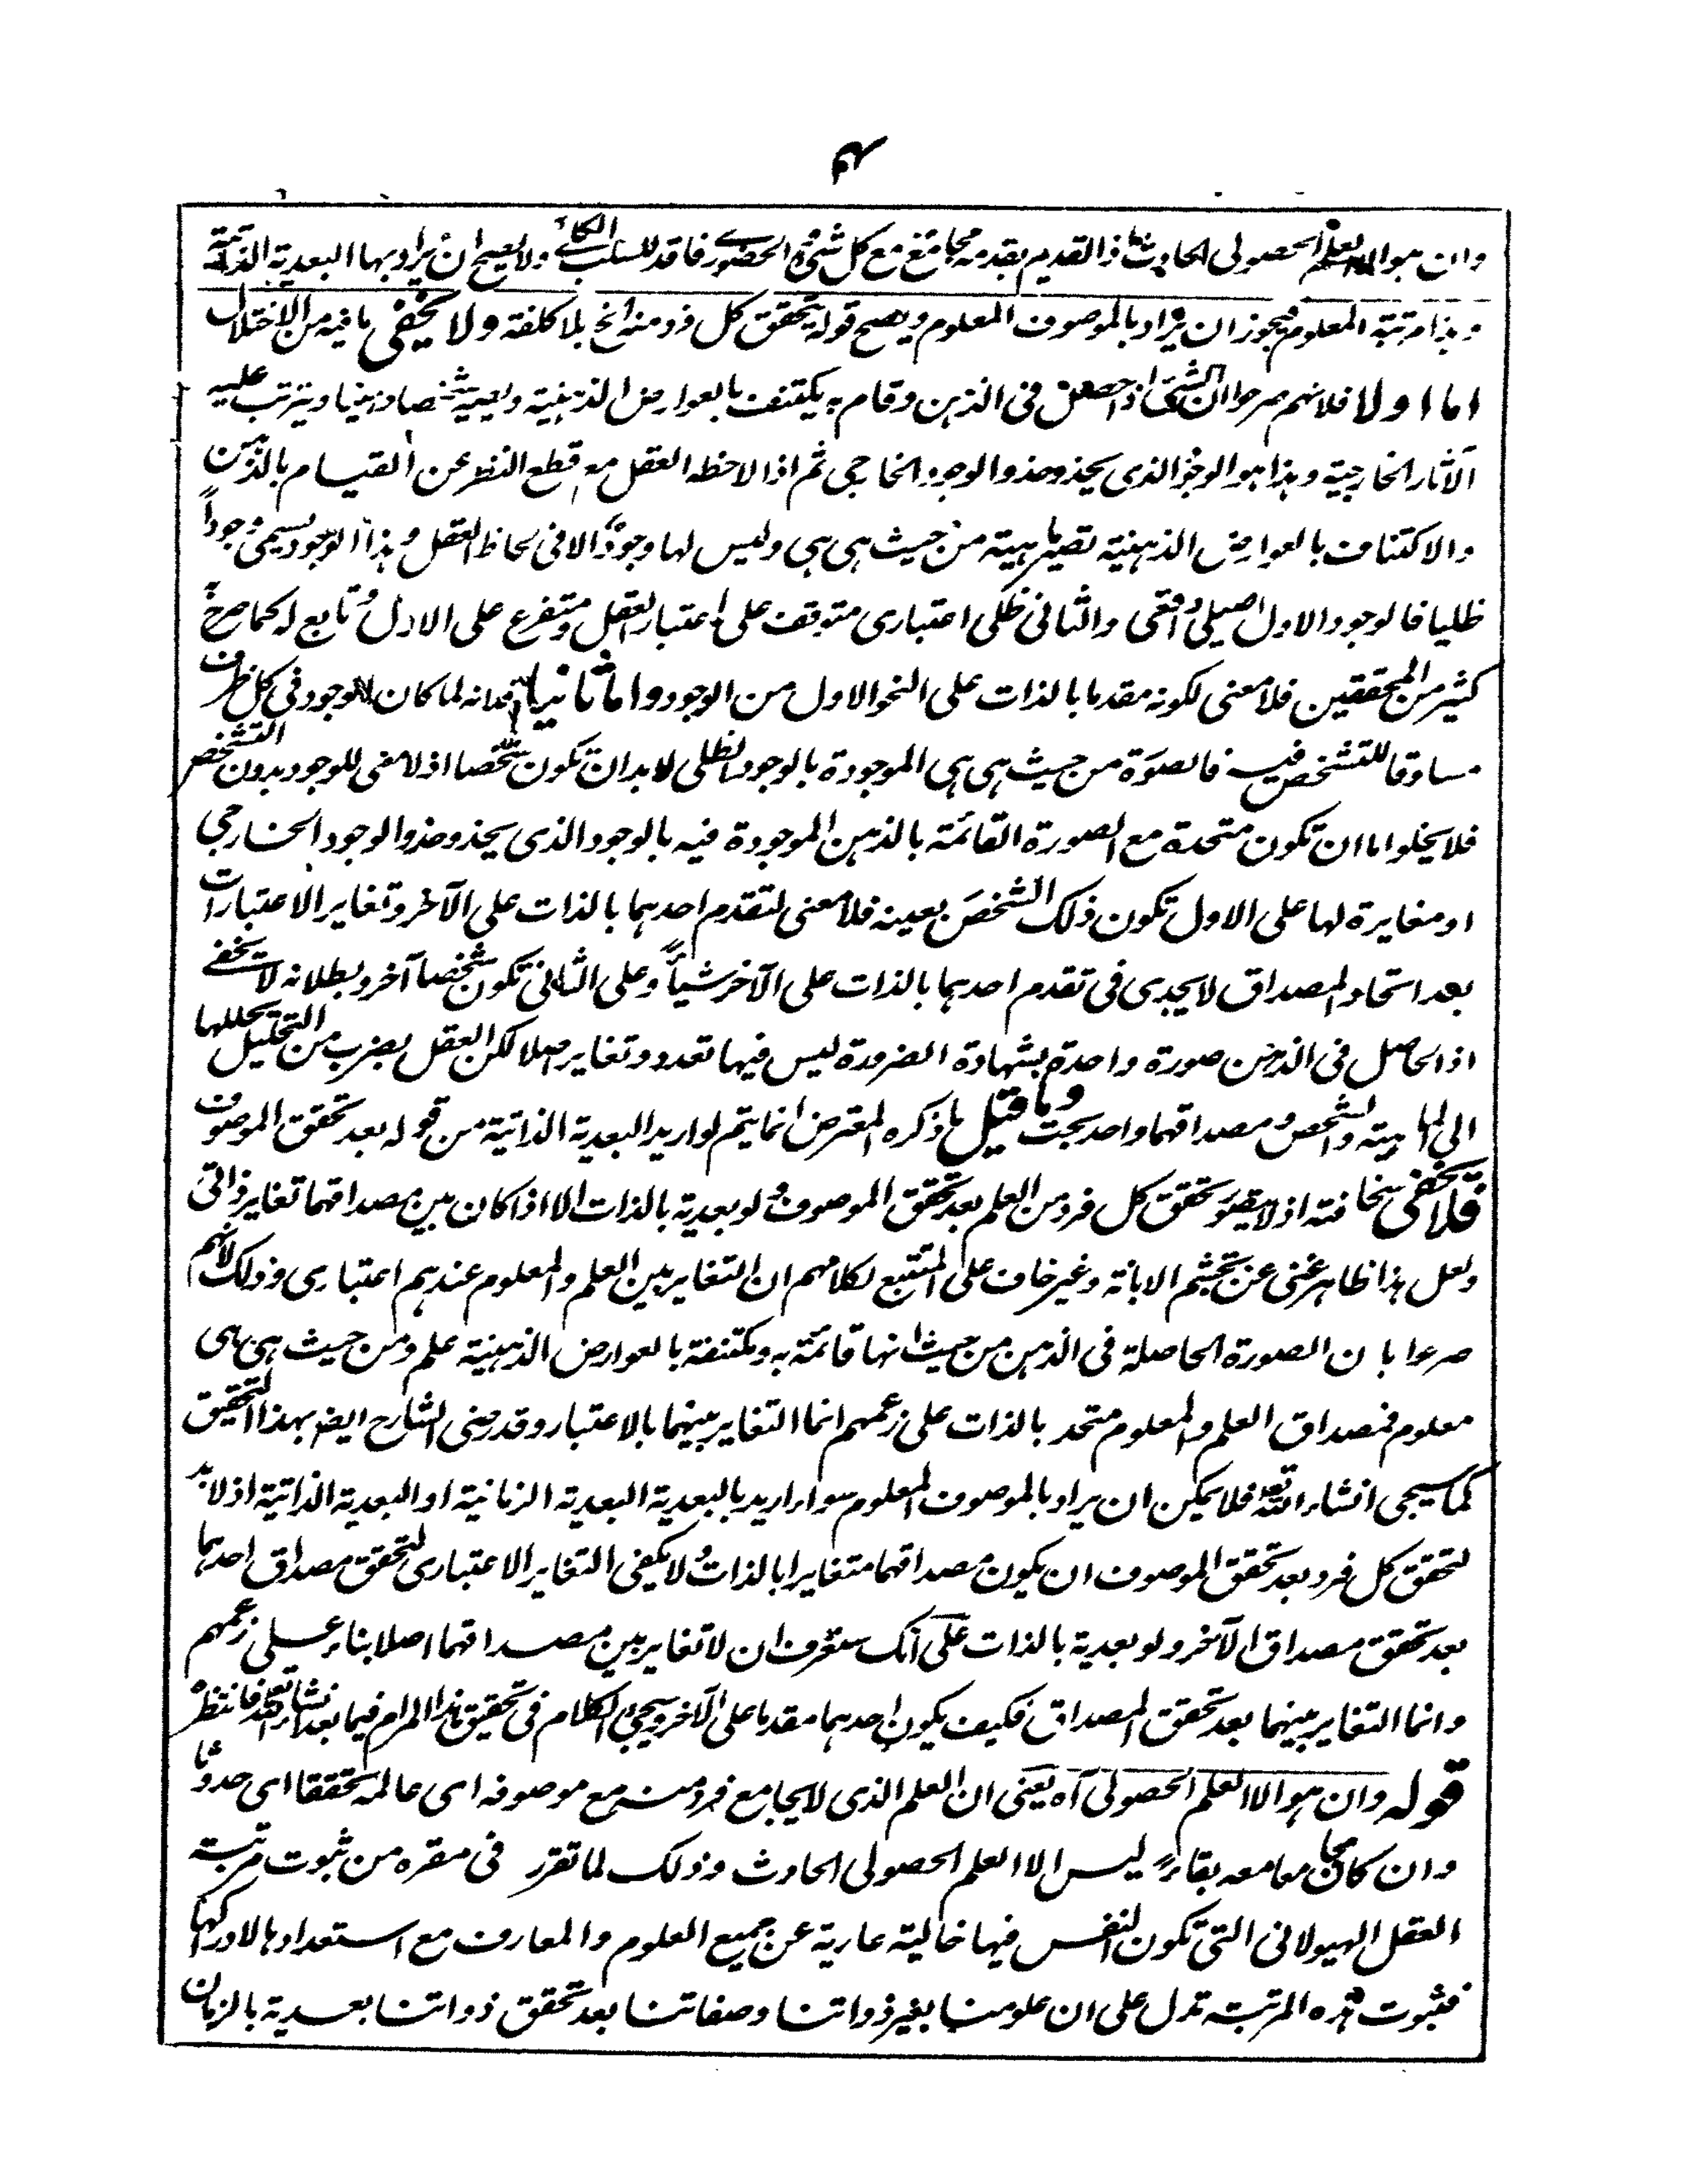 وان هو الا العلم الحصولی الحادث اذ القدیم بقدمه مجامع مع کل شیٔ والحضوری فاقد للسلب الکلی ولا یصح ان یراد بها البعدیة الذاتیة
وهذا مرتبة المعلوم فیجوز ان یراد بالموصوف المعلوم ویصح قوله یتحقق کل فرد منه الخ بلا کلفة ولا یخفی ما فیه من الاختلال
اما اولا فلانهم صرحوا ان الشئ اذا حصل فی الذهن وقام به یکتنف بالعوارض الذهنیة ویصیر شخصا ذهنیا ویترتب علیه
الآثار الخارجیة وهذا هو الوجود الذی یحذو حذو الوجود الخارجی ثم اذا لاحظه العقل مع قطع النظر عن القیام بالذهن
والاکتناف بالعوارض الذهنیة تصیر ماهیة من حیث هی هی ولیس لها وجود الا فی لحاظ العقل وهذا الوجود یسمی وجوداً
ظلیا فالوجود الاول اصیلی واقعی والثانی ظلی اعتباری متوقف علی اعتبار العقل ومتفرع علی الاول وتابع له کما صرح
کثیر من المحققین فلا معنی لکونه مقدما بالذات علی النحو الاول من الوجود واما ثانیا فلانه لما کان الوجود فی کل ظرف
مساوقا للتشخص فیه فالصورة من حیث هی هی الموجودة بالوجود الظلی لابد ان تکون شخصا اذ لا معنی للوجود بدون التشخص
فلا یخلو اما ان تکون متحدة مع الصورة القائمة بالذهن الموجودة فیه بالوجود الذی یحذو حذو الوجود الخارجی
او مغایرة لها علی الاول تکون ذلک الشخص بعینه فلا معنی لتقدم احدهما بالذات علی الآخر وتغایر الاعتبارات
بعد اتحاد المصداق لا یجدی فی تقدم احدهما بالذات علی الآخر شیأً وعلی الثانی تکون شخصا آخر وبطلانه لا یخفی
اذ الحاصل فی الذهن صورة واحدة بشهادة الضرورة لیس فیها تعدد وتغایر اصلا لکن العقل بضرب من التحلیل یحللها
الی الماهیة والتشخص ومصداقهما واحد بحت وما قیل ما ذکره المعترض انما یتم لو ارید البعدیة الذاتیة من قوله بعد تحقق الموصوف
فلا یخفی سخافته اذ لا یتصور تحقق کل فرد من العلم بعد تحقق الموصوف ولو بعدیة بالذات الا اذا کان بین مصداقهما تغایر ذاتی
ولعل هذا ظاهر غنی عن تجشم الابانة وغیر خاف علی المتتبع لکلامهم ان التغایر بین العلم والمعلوم عندهم اعتباری وذلک لانهم
صرحوا بان الصورة الحاصلة فی الذهن من حیث انها قائمة به ومکتنفة بالعوارض الذهنیة علم ومن حیث هی هی
معلوم فمصداق العلم والمعلوم متحد بالذات علی زعمهم انما التغایر بینهما بالاعتبار وقد رضی الشارح ایضا بهذا التحقیق
کما سیجی انشاء الله تعالی فلا یمکن ان یراد بالموصوف المعلوم سواء ارید بالبعدیة البعدیة الزمانیة او البعدیة الذاتیة اذ لابد
لتحقق کل فرد بعد تحقق الموصوف ان یکون مصداقهما متغایرا بالذات ولا یکفی التغایر الاعتباری لتحقق مصداق احدهما
بعد تحقق مصداق الآخر ولو بعدیة بالذات علی انک ستعرف ان لا تغایر بین مصداقهما اصلا بناء علی زعمهم
وانما التغایر بینهما بعد تحقق المصداق فکیف یکون احدهما مقدما علی الآخر ویجئ الکلام فی تحقیق هذا المرام فیما بعد انشاء الله تعالی فانتظر
قوله وان هو الا العلم الحصولی آه یعنی ان العلم الذی لا یجامع فرد منه مع موصوفه ای عالمه تحققا ای حدوثا
وان کان مجامعا معه بقاءً لیس الا العلم الحصولی الحادث وذلک لما تقرر فی مقره من ثبوت مرتبة
العقل الهیولانی التی تکون النفس فیها خالیة عاریة عن جمیع العلوم والمعارف مع استعدادها لادراکها
فثبوت هذه المرتبة تدل علی ان علومنا بغیر ذواتنا وصفاتنا بعد تحقق ذواتنا بعدیة بالزمان